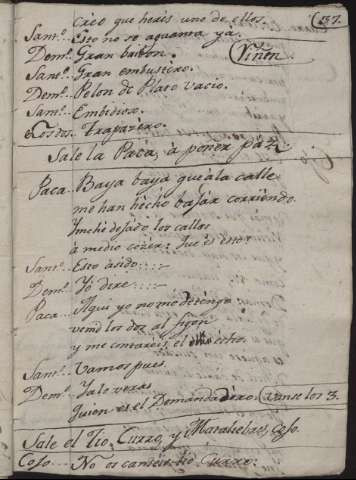 creo que heris uno de ellos. 137.
Sant.º Esto no se aguanta ya.
Dem.º Gran bribon. Riñen
Sant.º Gran embustero.
Dem.º Pelon de Plato vacio.
Sant.º Embidioso.
Los dos. Trapazero.
Sale la Paca, à poner paz.
Paca. Baya baya que à la calle
me han hecho bajar corriendo.
Yme he dejado los callos
à medio cozer;
Sant.º Esto à sido
Dem.º Yo dire
Paca Aqui yo no me detengo
venid los dos al figon
y me contareis el
Sant.º Vamos pues.
Dem.º Ya lo veras
quien es el Demandadero. Vanse los 3.
Sale el Tio Curro, y
Cojo. No os canseis tio Curro: